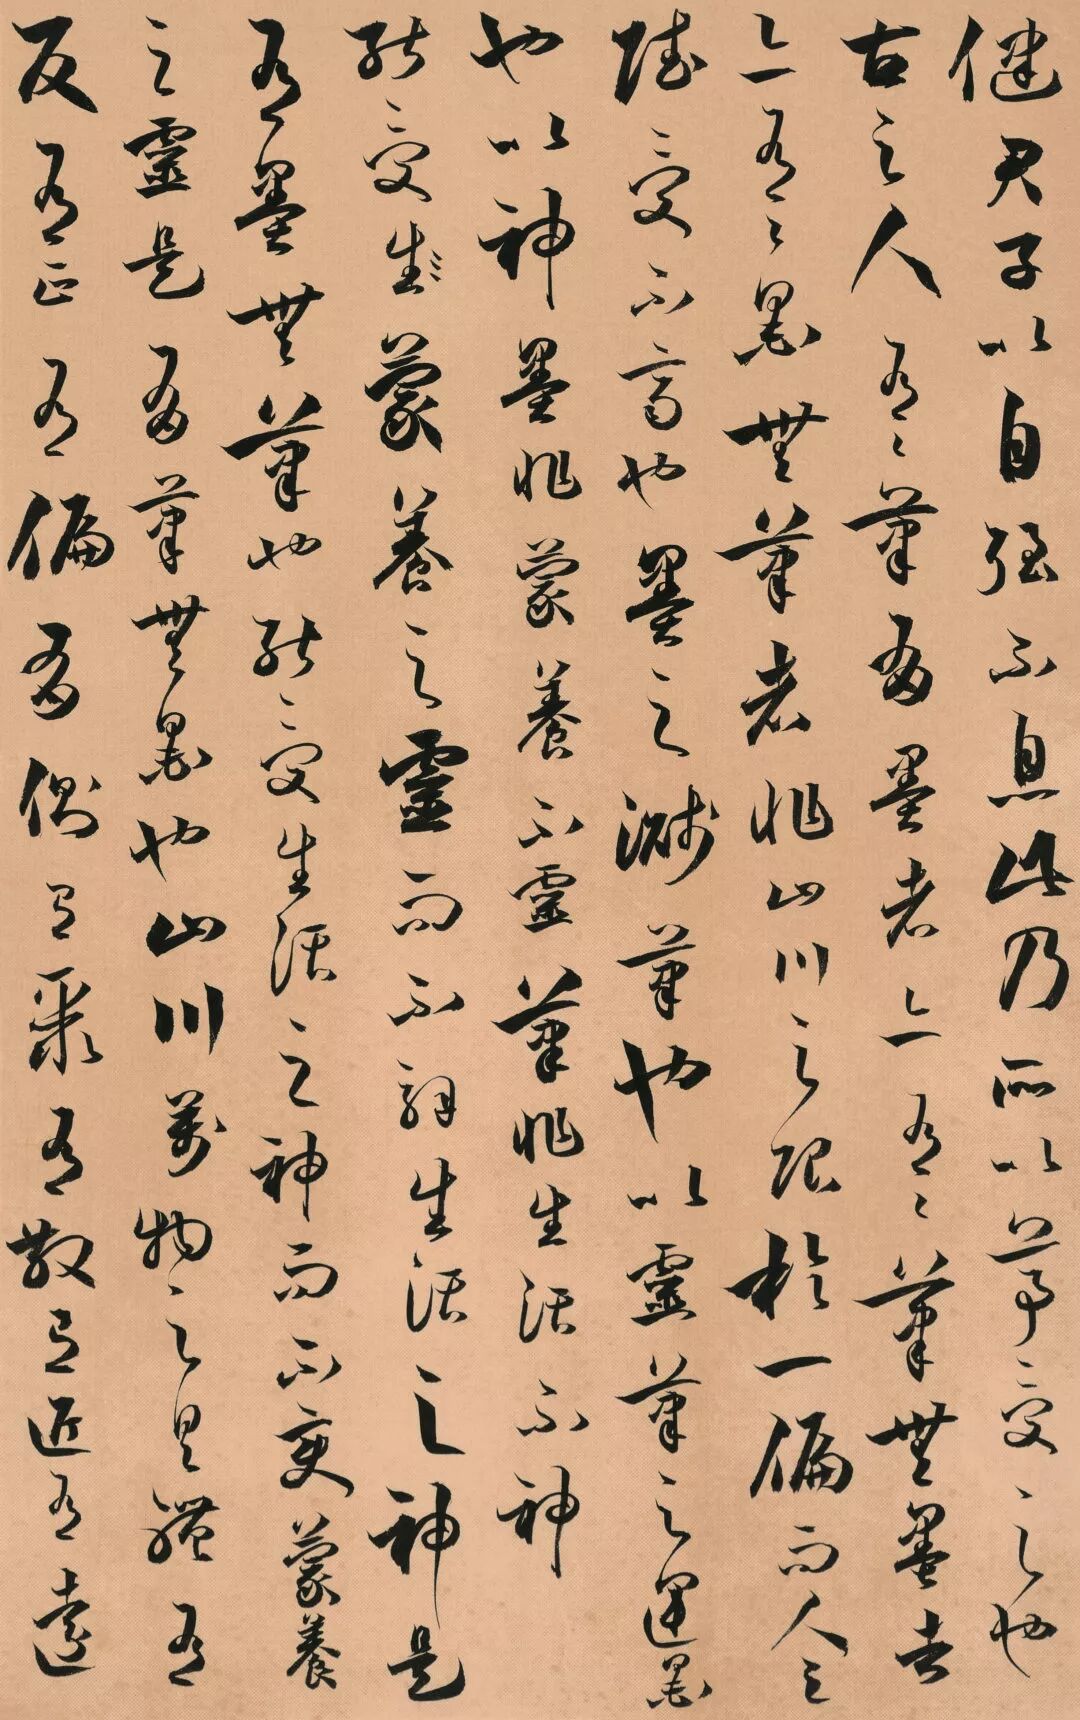 健君子以自强不息此乃所以尊受之也
古之人有〻筆有墨者亦有〻筆無墨者
亦有〻墨無筆者非山川之限於一偏而人之
賦受不齊也墨之濺筆也以靈筆之運墨
也以神墨非蒙養不靈筆非生活不神
能受生蒙養之靈而不解生活之神是
有墨無筆也能受生活之神而不變蒙養
之靈是有筆無墨也山川萬物之具體有
反有正有偏有側有聚有散有近有遠